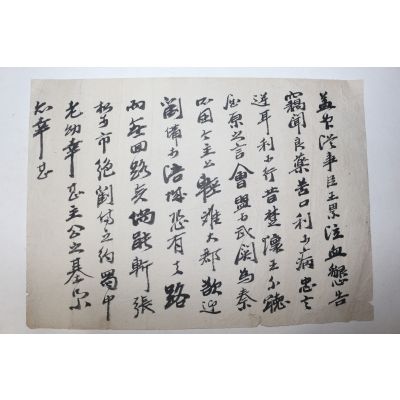 益州從事臣王累泣血懇告
竊聞良藥苦口利於病忠言
逆耳利於行昔楚懷王不聽
屈原之言會盟於武關為秦
所困今主公輕離大郡欲迎
劉備於涪城恐有去路
而無回路矣倘能斬張
松於市絕劉備之約蜀中
老幼幸甚主公之基業
亦幸甚